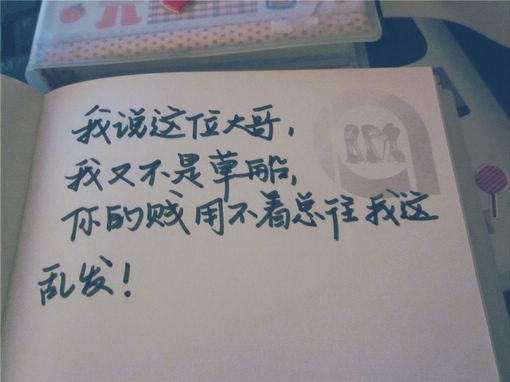 我说这位大哥，
我又不是草船，
你的贱用不着总往我这
乱发！